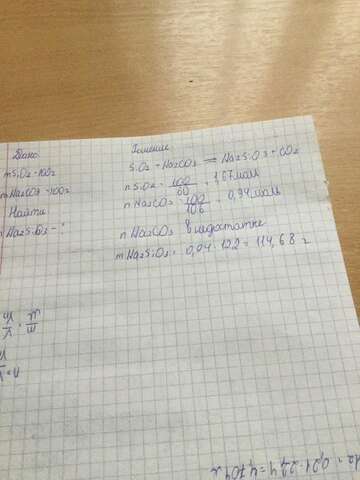 Дано
mSiO2 - 100г
mNa2CO3 - 100г
Найти
mNa2SiO3 - ?
Решение
SiO2 + Na2CO3 = Na2SiO3 + CO2
nSiO2 = 100/60 = 1,67 моль
nNa2CO3 = 100/106 = 0,94 моль
n Na2CO3 в недостатке
mNa2SiO3 = 0,94 · 122 = 114,68 г
m/M · V/Vm
n = V
= 0,21 · 22,4 = 4,704 л